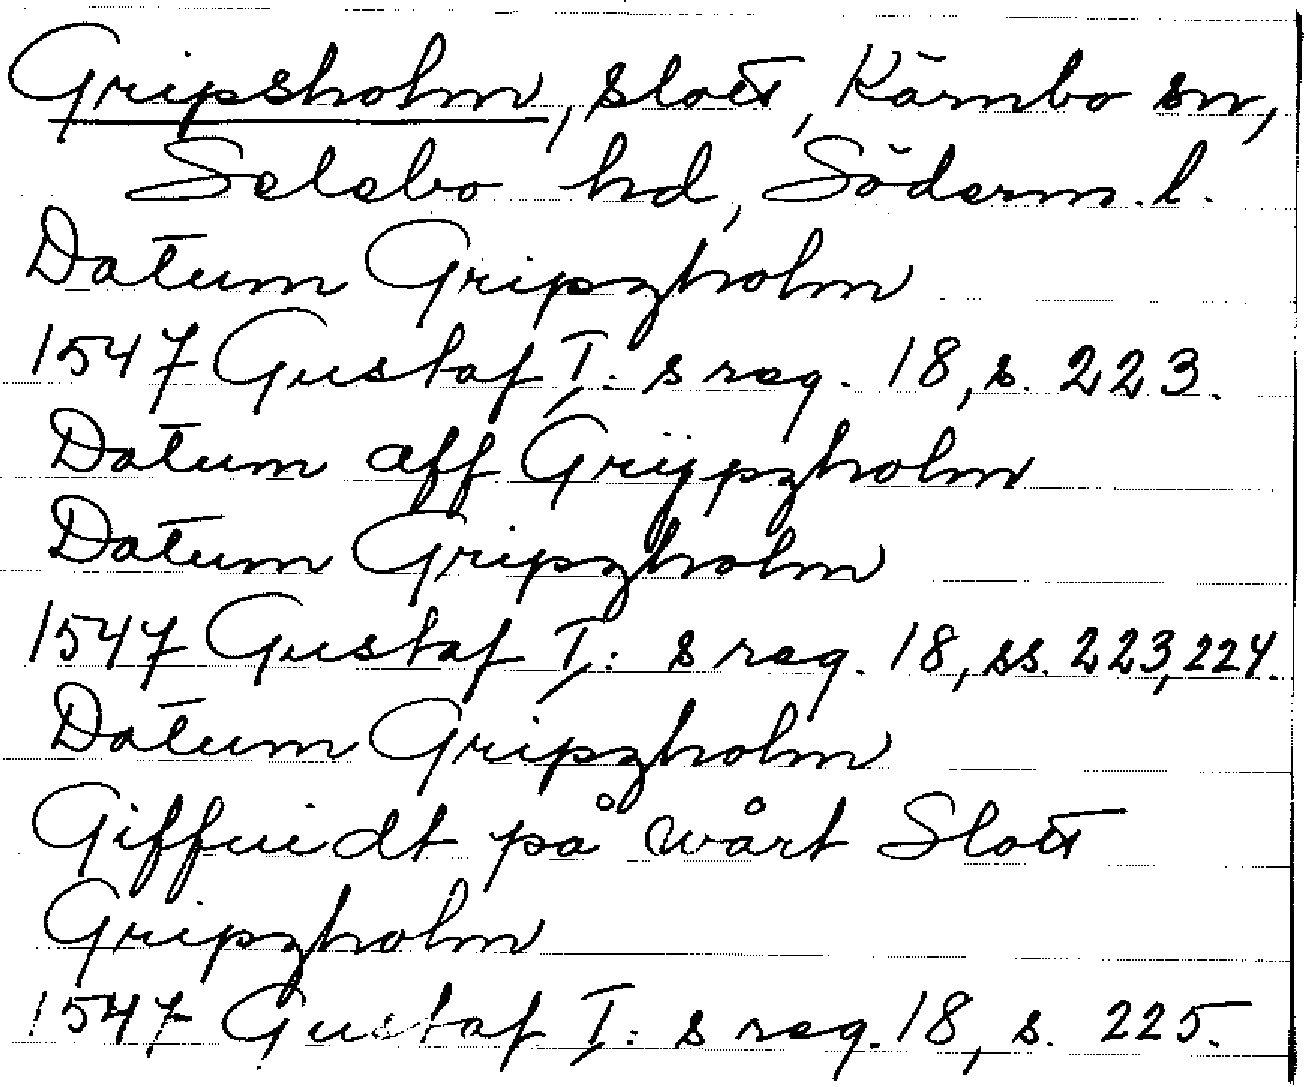 Gripsholm, slott, Kärnbo sn,
Selebo hd, Söderm. l.
Datum Gripzholm
1547 Gustaf I: s reg. 18, s. 223.
Datum aff Grijpzholm
Datum Gripzholm
1547 Gustaf I: s reg. 18, ss. 223, 224.
Datum Gripzholm
Giffuidt på wårt Slott
Gripzholm
1547 Gustaf I: s reg. 18, s. 225.